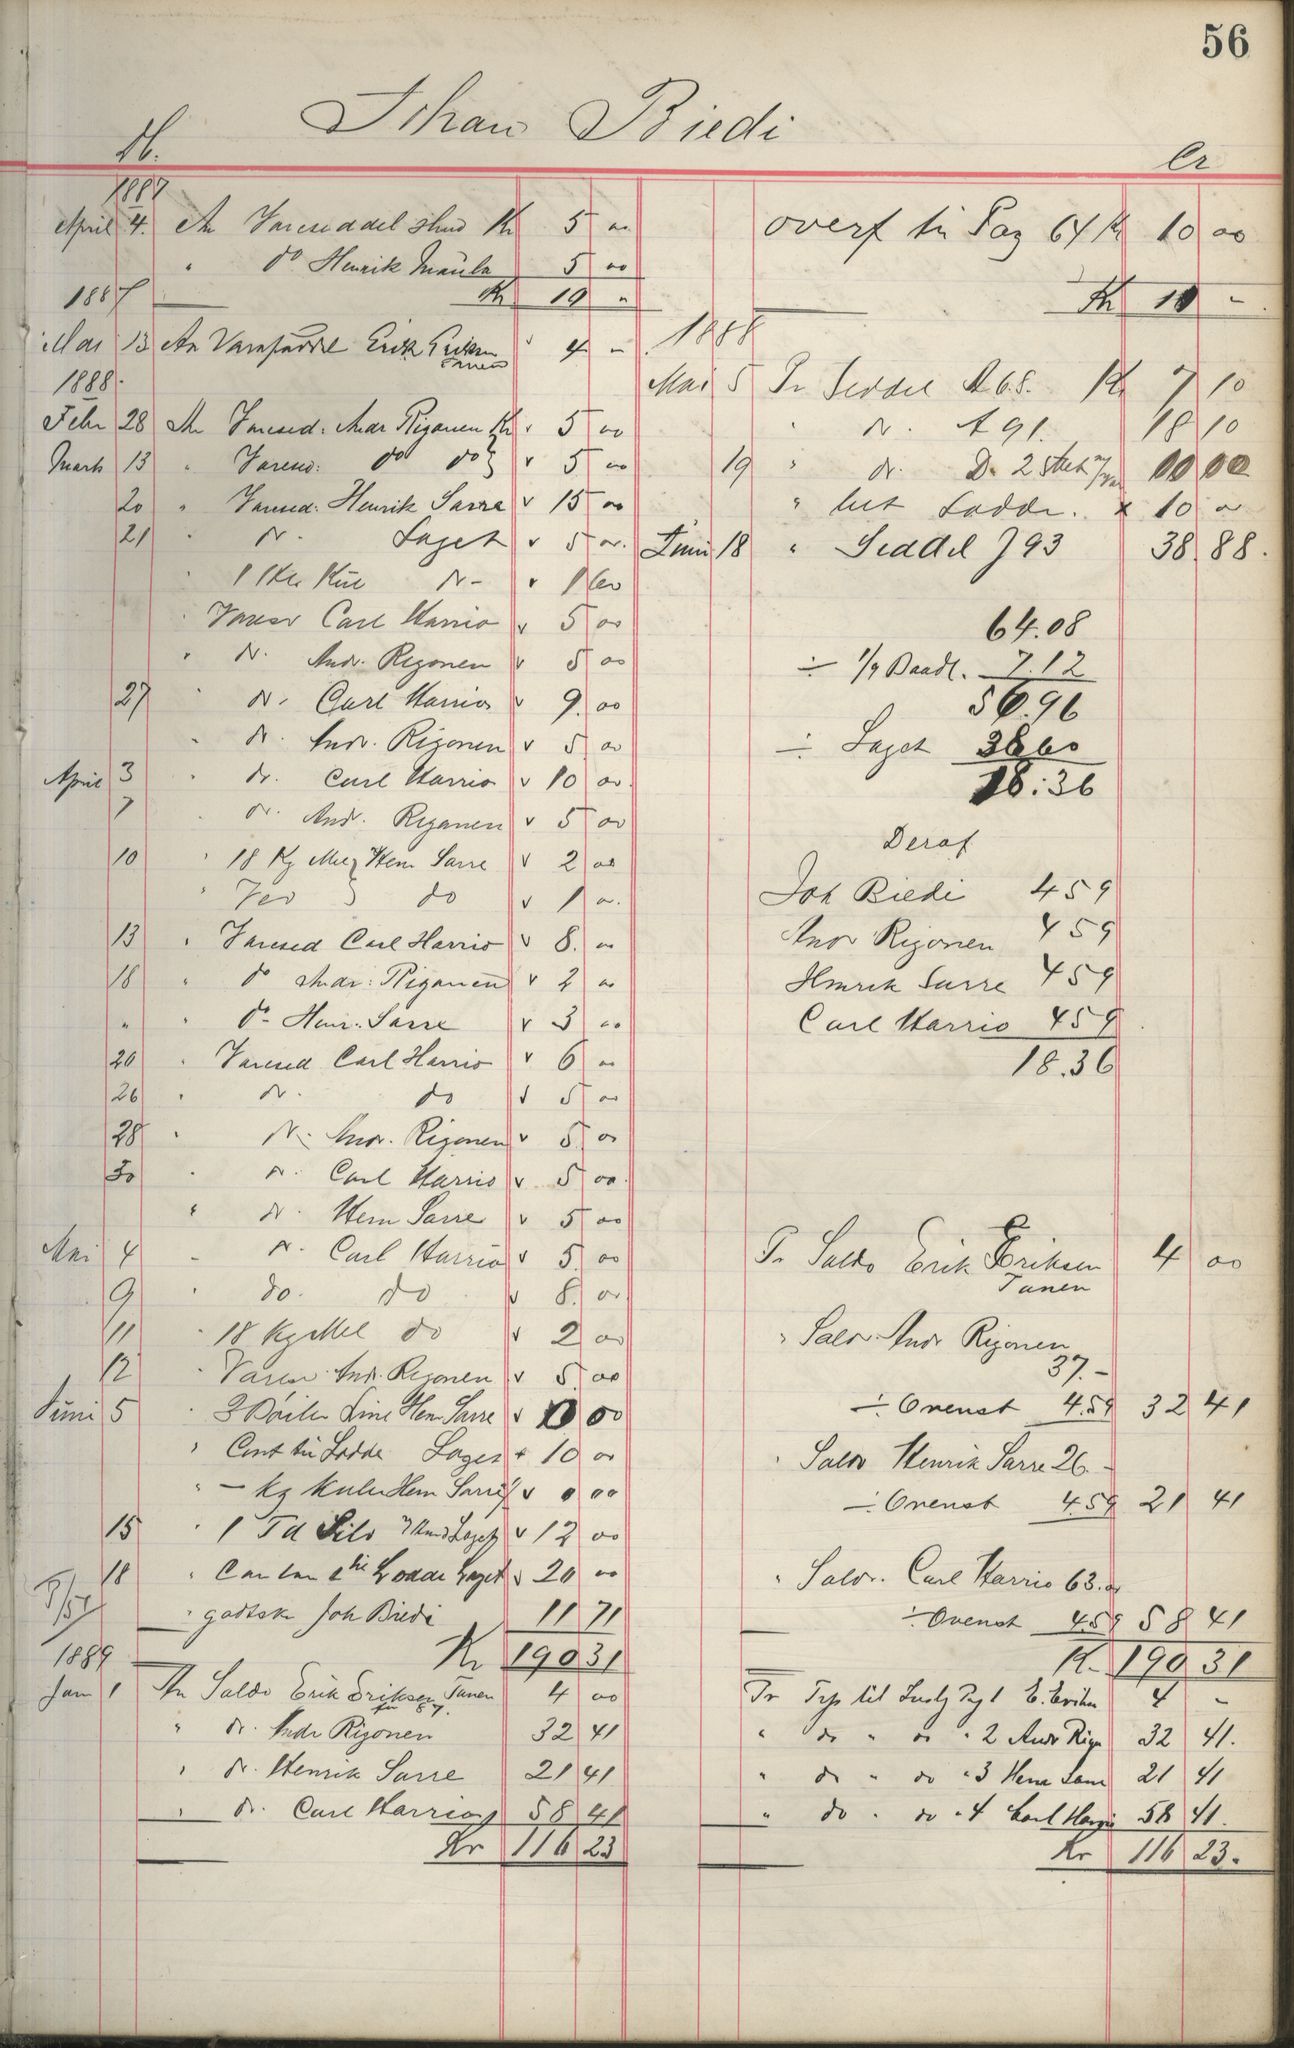 56
Johan Biedi
Db.
Cr
1887
April 4. An Vareseddel Kr 5 00
" do Henrik Maula 5 00
Kr 10 "
1887
Mai 13 An Erik Eriksen " 4 -
Tanen
1888.
Febr 28 An Varesed: Andr Rigonen Kr v 5 00
Marts 13 " Varesed: do do v 5 00
20 " Varesed: Henrik Sarre v 15 00
21 " do. Laget v 5 00.
" 1 do - v 1 60
" Varesed Carl Harrio v 5 00
" do. Andr. Rigonen v 5 00
27 " do. Carl Harrio v 9. 00
" do. Andr. Rigonen v 5. 00
April 3 " do. Carl Harrio v 10 00.
7 " do. Andr. Rigonen v 5 00
10 " 18 Kg Mel Hen Sarre v 2 00
" Ved do v 1 00.
13 " Varesed Carl Harrio v 8. 00
18 " do Andr: Rigonen v 2 00
" " do Henr. Sarre v 3 00
20 " Varesed Carl Harrio v 6 00
26 " do. do v 5 00
28 " do. Andr. Rigonen v 5. 00
30 " do. Carl Harrio v 5 00.
" do. Hen Sarre v 5 00
Mai 4 " do. Carl Harrio v 5. 00
9 " do. do v 8. 00
11 " 18 Kg Mel do v 2 00
12 " Varesed Andr. Rigonen v 5. 00
Juni 5 " 3 Line Hen Sarre v 00
" Cont til Lodde Laget + 10 00
" - Kg Hen Sarre v 0 00
15 " 1 Td Sild Laget v 12 00
18 " Lodde Laget v 20 00
" godtsk Joh Biedi 11 71
Kr 190 31
1889
Jan 1 An Saldo Erik Eriksen Tanen 4 00
87.
" do. Andr Rigonen 32 41
" do. Henrik Sarre 21 41
" do. Carl Harrio 58 41
Kr 116 23
overf til Pag 64 Kr 10 00
Kr 10 -
1888
Mai 5 Pr Seddel A 68. Kr 7 10
" do. A 91. 18 10
19 " do. D. 2 00 00
" Lodde. x 10 00
Juni 18 " Seddel J 93 38. 88.
64.08
÷ 1/9 Baadl. 7.12
56.96
÷ Laget 38 60
18:36
Deraf
Joh Biedi 4 59
Andr Rigonen 4 59
Henrik Sarre 4 59
Carl Harrio 4 59
18.36
Pr Saldo Erik Eriksen 4 00
Tanen
" Saldo Andr Rigonen
37.-
÷ Ovenst 4.59 32 41
" Saldo Henrik Sarre 26.-
÷ Ovenst 4.59 21 41
" Saldo. Carl Harrio 63.00
÷ Ovenst 4.59 58 41
Kr 190 31
Pr til Pag 1 E. Eriksen 4 -
" do " do " 2 Andr Rigo 32 41.
" do " do " 3 Henr Sarre 21 41
" do " do " 4 Carl Harrio 58 41.
Kr 116 23.